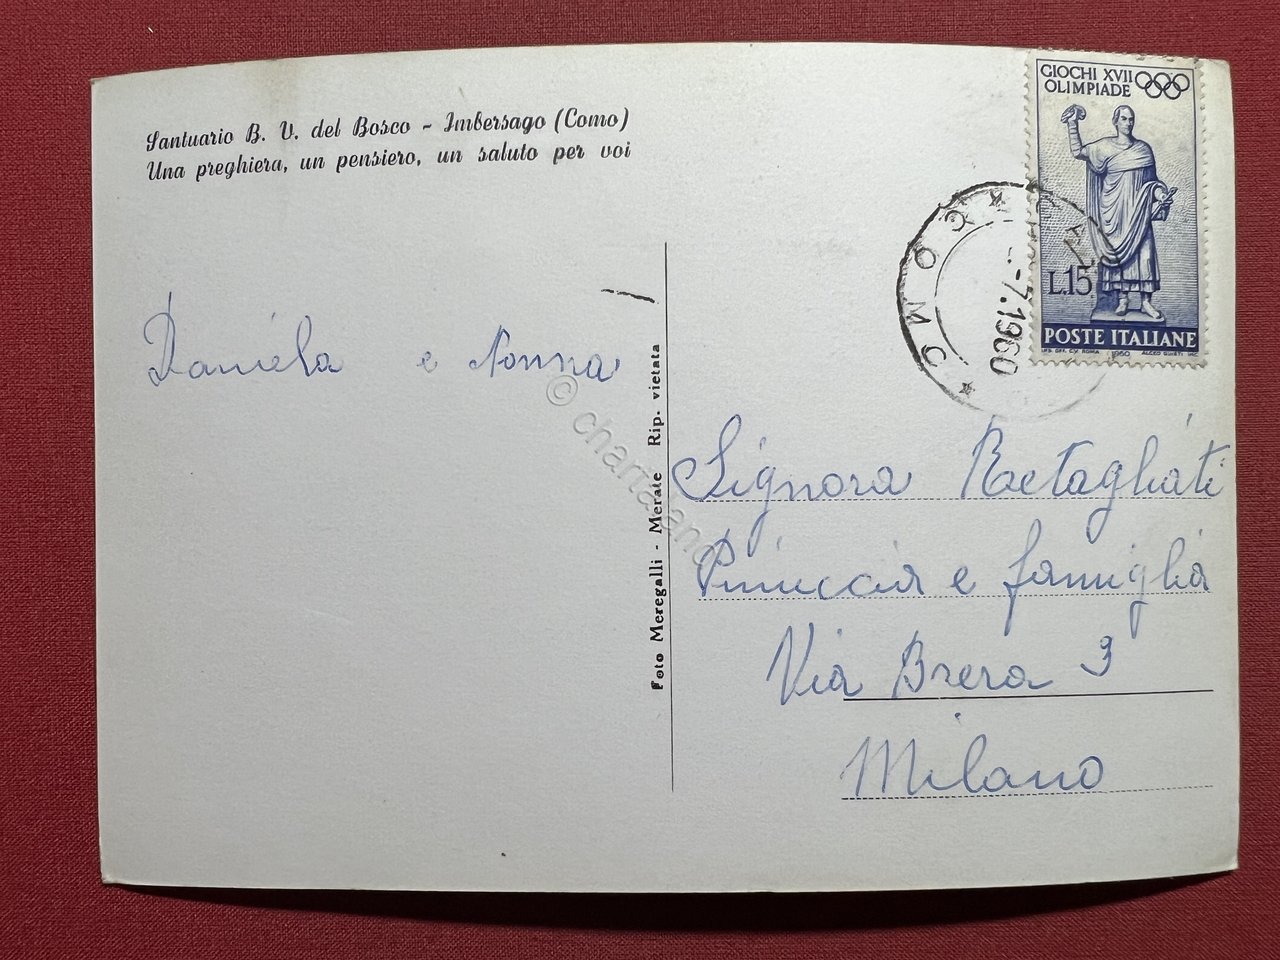 Santuario B. V. del Bosco - Imbersago (Como)
Una preghiera, un pensiero, un saluto per voi
Daniela e Nonna
Foto Meregalli - Merate Rip. vietata
GIOCHI XVII
OLIMPIADE
L.15
POSTE ITALIANE
I.P.S. OFF. C.V. ROMA 1960 ALCEO QUIETI INC.
-7.1960
Signora
e famiglia
Via Brera 9
Milano
© chartaland